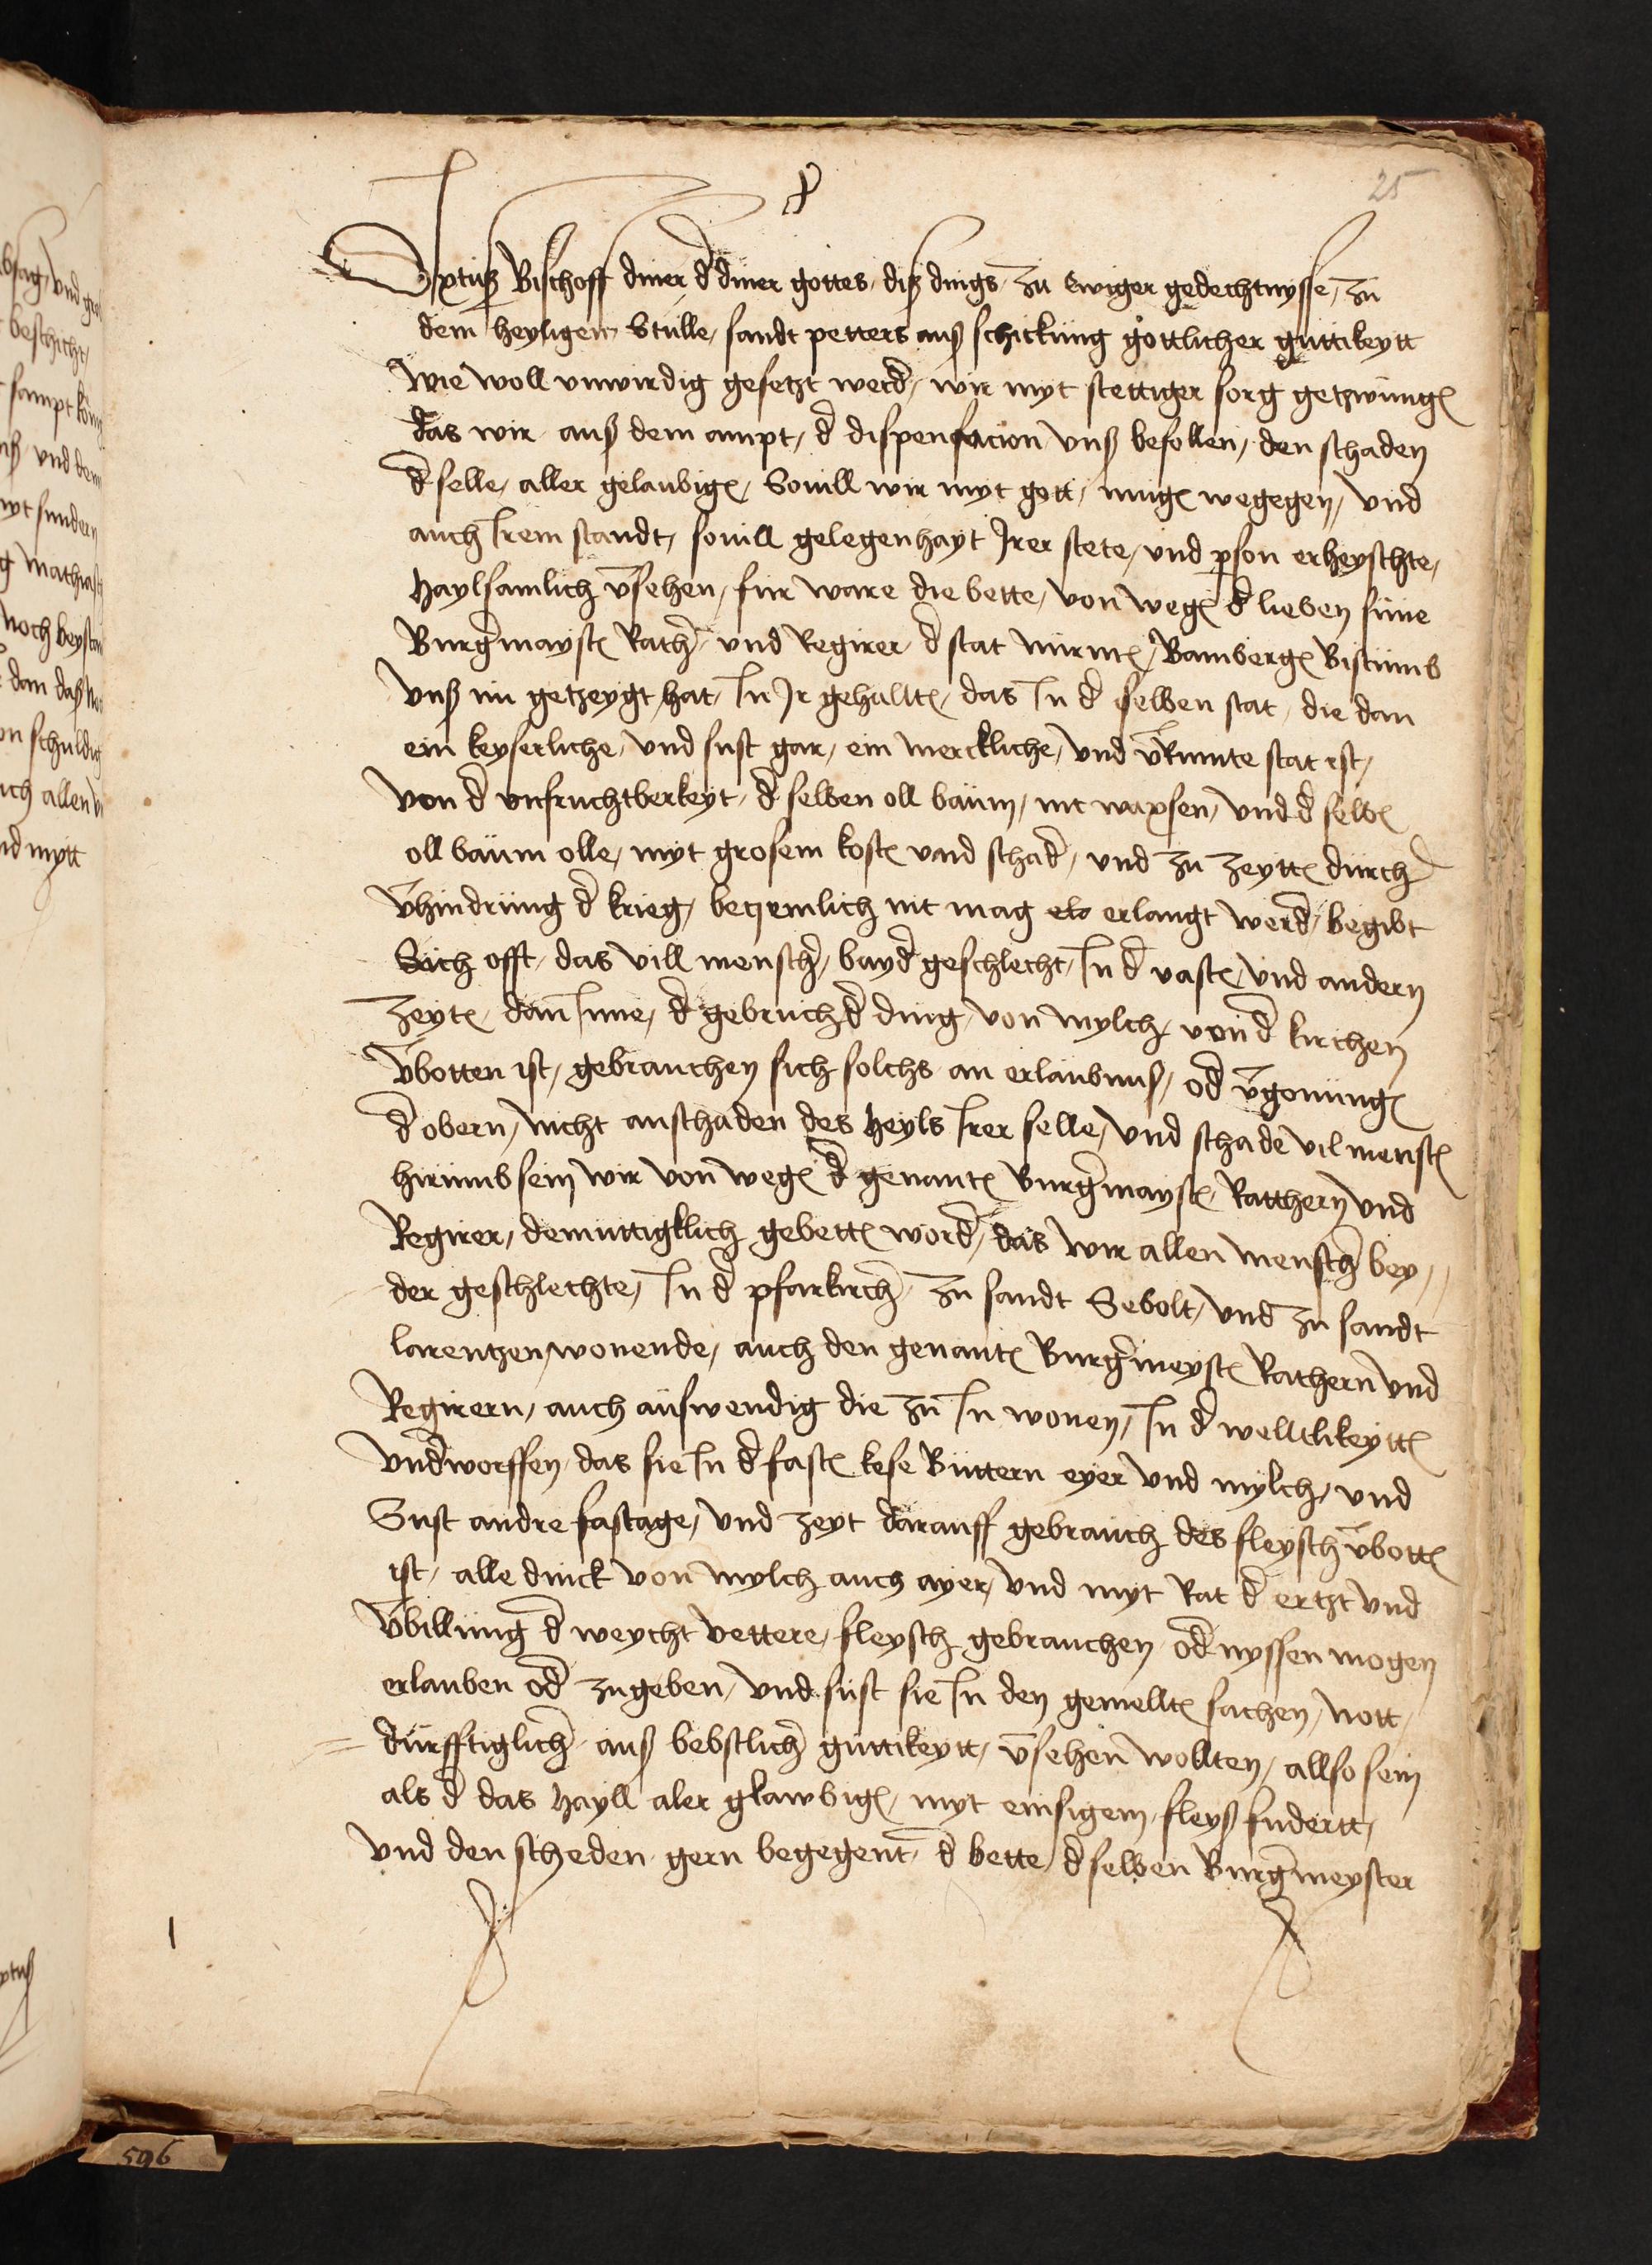 25
Sixtuß Bischoff diner d diner gottes diß dings zu ewiger gedechtnysse, zu
dem heyligen Stulle, sandt petters auß schickung gottlicher guttikeytt
wie woll vnwirdig gesetzt werd, wir myt stettiger sorg getzwung
das wir auß dem ampt, d dispensacion vnß befollen, den schaden
d selle, aller gelaubig, Souill wir myt gott, mug wegegen, vnd
auch Irem standt, souill gelegenhayt Irer stete, vnd pson erheyschte,
haylsamlich vsehen, fur ware die bette, von weg d lieben süne
Burgmayst Rath vnd Regirer d stat nurmt, Bamberg Bistumb
vnß nu getzeygt hat, In Ir gehallt, das In d selben stat, die dan
ein keyserliche, vnd sust gar, ein merckliche, vnd vrumte stat ist,
von d vnfruchtberkeyt, d selben oll baum, nit waxsen, vnd d selb
oll baum olle, myt grosem kost vnd schad, vnd zu zeytt durch
vhindrung d krieg, beqwemlich nit mag erlangt werd, begibt
Sich offt, das vill mensch, bayd geschlecht, In d vast vnd andern
zeyt, dan Inne, d gebruch d ding, von mylch, von d kirchen
vbotten ist, gebrauchen sich solchs an erlaubnuß, od vgonnung
d obern, nicht anschaden des heyls Irer selle, vnd schade vil mensch
hirumb sein wir von weg d genant Burgmayst, Ratthern vnd
Regirer, demuttigklich gebett word, das wir allen mensch bey,,
der geschlechte, In d pfarkirch zu sandt Sebolt, vnd zu sandt
larentzen wonende, auch den genant Burgmeyst Rathern vnd
Regirern, auch auswendig die zu In wonen, In d welltlikeytt
vndworffen das sie In d fast kese Buttern eyer vnd mylch, vnd
Sust andre fastage, vnd zeyt darauff gebrauch des fleysch vbott
ist, alle dinck von mylch auch ayer, vnd myt Rat d ertzt vnd
vbillung d weycht vettere, fleysch gebrauchen od nyssen mogen
erlauben od zugeben, vnd sust sie In den gemellt sachen, nott,
= durfftiglich auß bebstlich guttikeytt, vsehen wollten, allso sein
als d das hayll aler glawbig, myt emsigem fleyß fudertt,
vnd den scheden gern begegent, d bette, d selben Burgmeyster
596